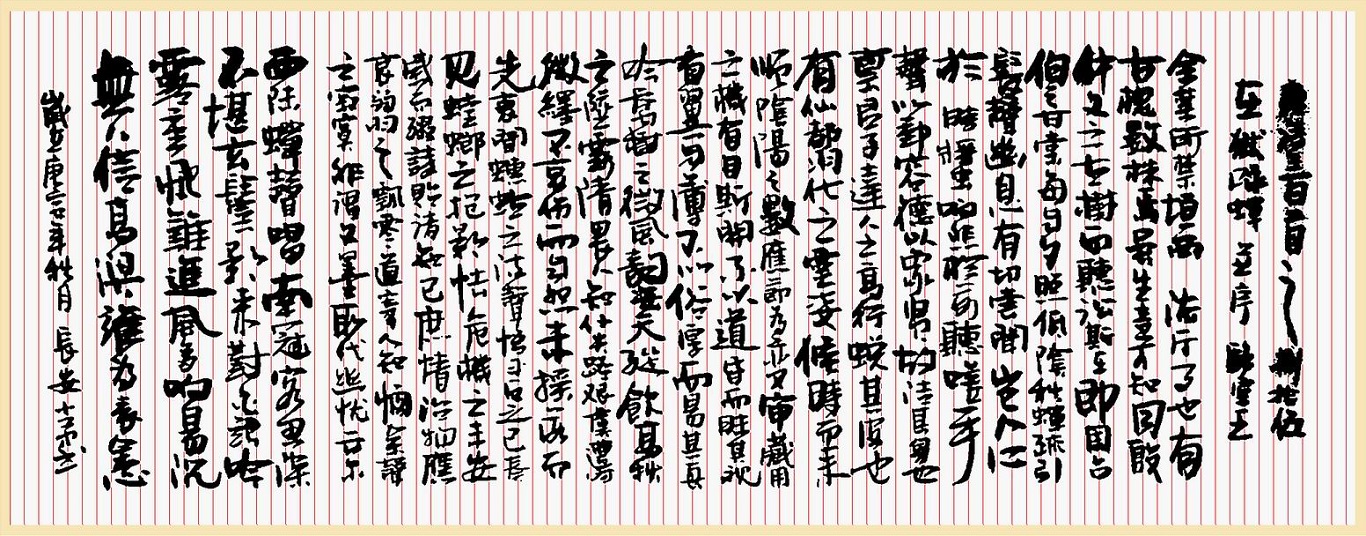 唐詩三百首之捌拾伍
在獄詠蟬 並序 駱賓王
余禁所禁垣西法廳事也有
古槐數株焉雖生意可知同殷
仲文之古樹而聽訟斯在即周召
伯之甘棠每至夕照低陰秋蟬疏引
發聲幽息有切嘗聞豈人心
於曩時將蟲响悲於前聽嗟乎
聲以動容德以象賢故潔其身也
稟君子達人之高行蛻其皮也
有仙都羽化之靈姿候時而來
順陰陽之數應節為變審藏用
之機有目斯開不以道昏而昧其視
有翼自薄不以俗厚而易其真
吟喬樹之微風韻資天縱飲高秋
之墜露清畏人知僕失路艱虞遭時
徽纆不哀傷而自怨未搖落而
先衰聞蟪蛄之流聲悟平反之已奏
見螳螂之抱影怯危機之未安
感而綴詩貽諸知己庶情沿物應
哀弱羽之飄零道寄人知憫餘聲
之寂寞非謂文墨取代幽憂云爾
西陸蟬聲唱南冠客思深
不堪玄鬢影來對白頭吟
露重飛難進風多响易沉
無人信高潔誰為表予心
歲在庚子年秋月 長安十